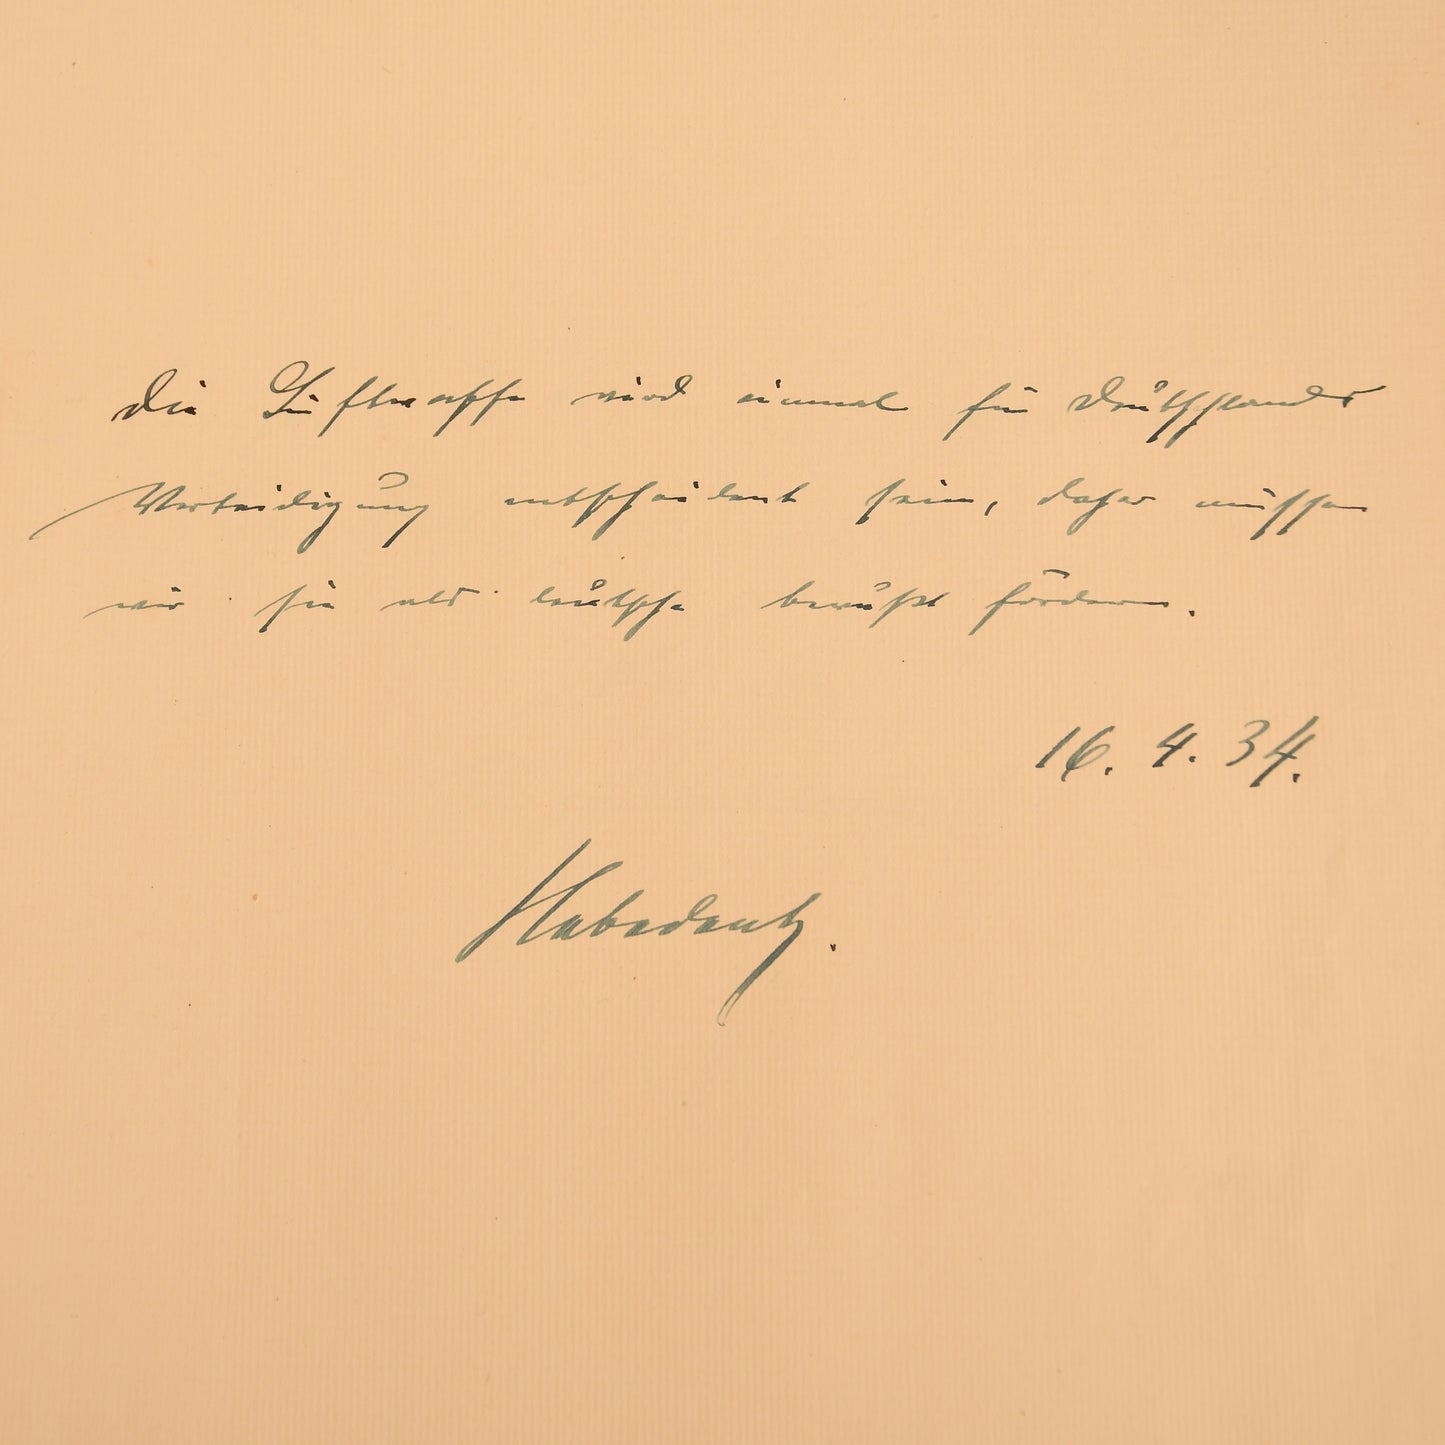 Die Luftwaffe wird einmal für Deutschlands
Verteidigung entscheidend sein, daher müssen
wir sie als deutsche bewußt fördern.
16. 4. 34.
Habedank.